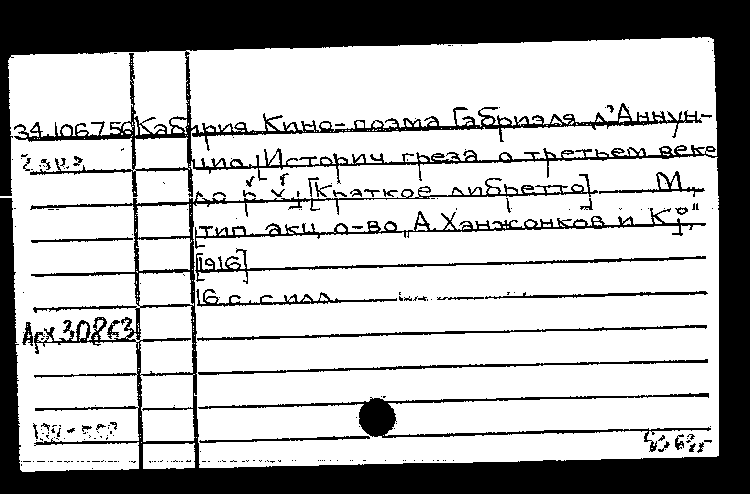 34.106.756 Кабирия. Кино-поэма Габриэля д'Аннун-
2 экз цио. [Историч. греза о третьем веке
до р. х.] [Краткое либретто]. М.,
тип. акц. о-во „А. Ханжонков и К°",
[1916]
16 с. с илл.
Арх.30863